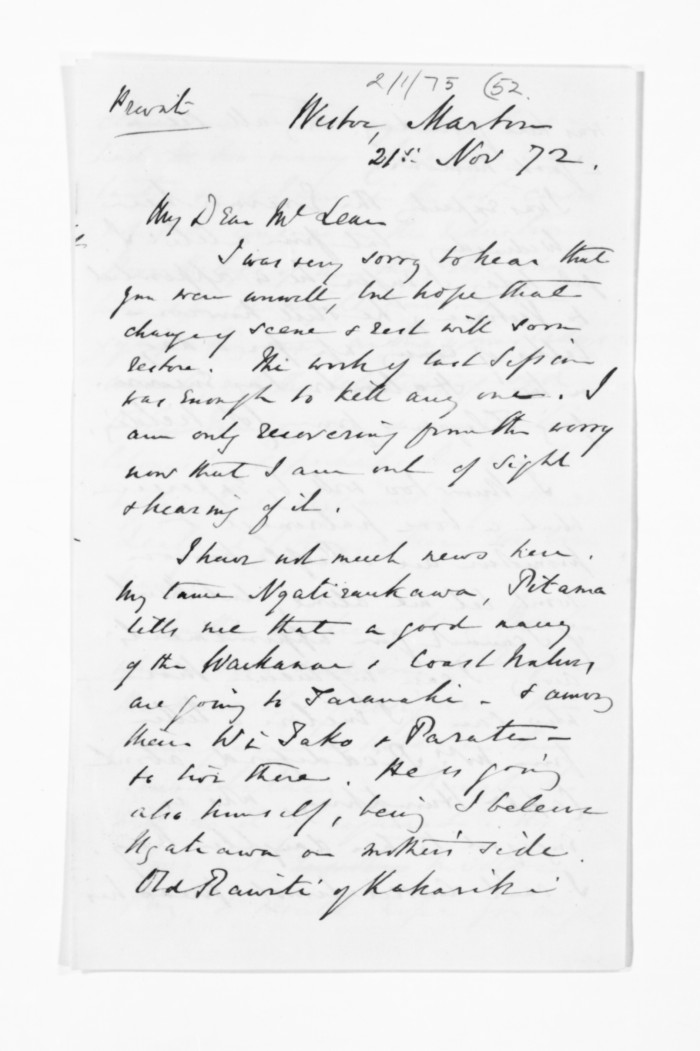 2/1/75 (52.
Private
Westoe, Marton
21st Nov 72.
My Dear Mc Lean
I was very sorry to hear that
you were unwell, but hope that
change of scene & rest will soon
restore. The work of last Session
was enough to kill any one. I
am only recovering from the worry
now that I am out of sight
& hearing of it.
I have not much news here.
My tame Ngatiraukawa, Pitama
tells me that a good many
of the Waikanae & Coast Natives
are going to Taranaki - & among
them Wi Tako & Parata -
to live there. He is going
also himself, being I beleive
Ngatiawa on mother's side.
Old Rawiti of Kakariki